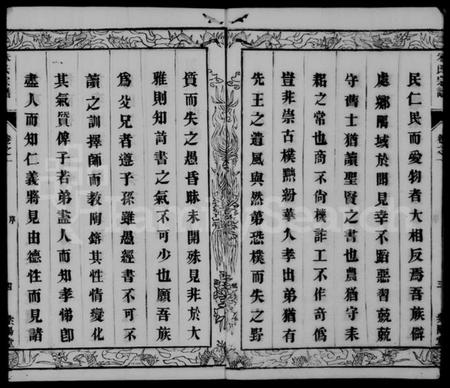 卷之一
三
民仁民而愛物者大相反焉吾族僻
處鄉隅域於聞見幸不蹈惡習兢兢
守舊士猶讀聖賢之書也農猶守耒
耜之常也商不尚機詐工不作奇僞
豈非崇古樸黜紛華人孝出弟猶有
先王之遺風與然弟恐樸而失之野
質而失之愚昏昧未開殊見非於大
雅則知詩書之氣不可少也願吾族
爲父兄者遵子孫雖愚經書不可不
讀之訓擇師而教陶鎔其性情變化
其氣質俾子若弟盡人而知孝悌卽
盡人而知仁義將見由德性而見諸
卷之一
序
四